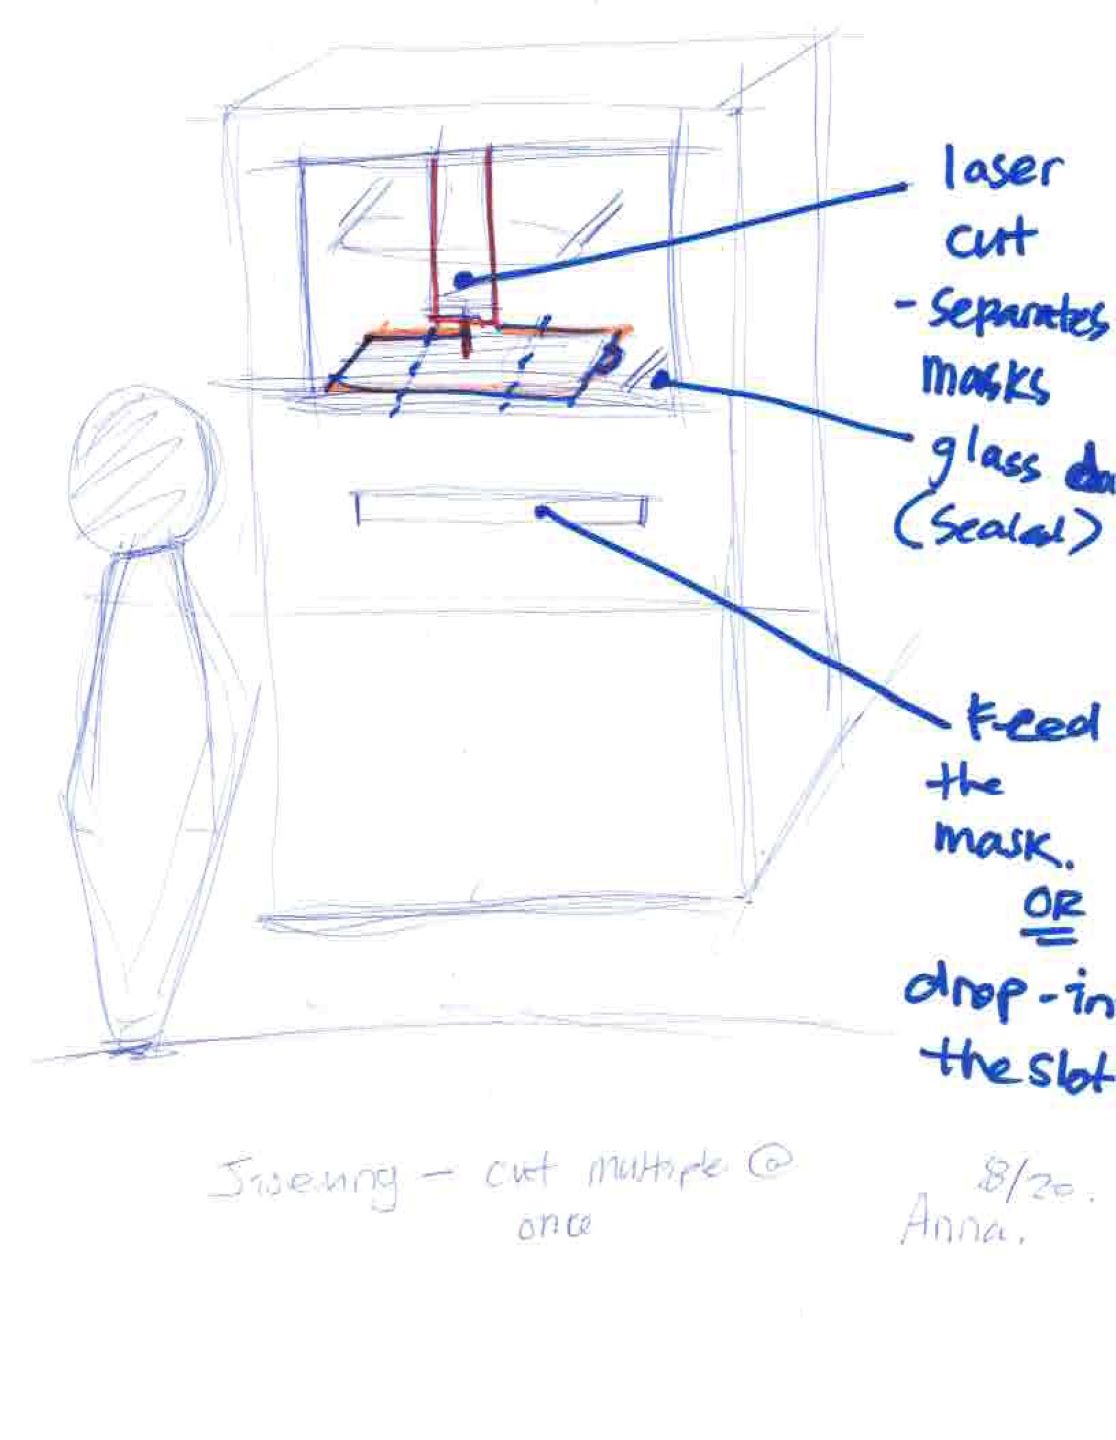 laser
cut
- separates
masks
glass
(sealed)
Feed
the
mask.
OR
drop-in
the slot
Jiseung - cut multiple @
once
8/20.
Anna.